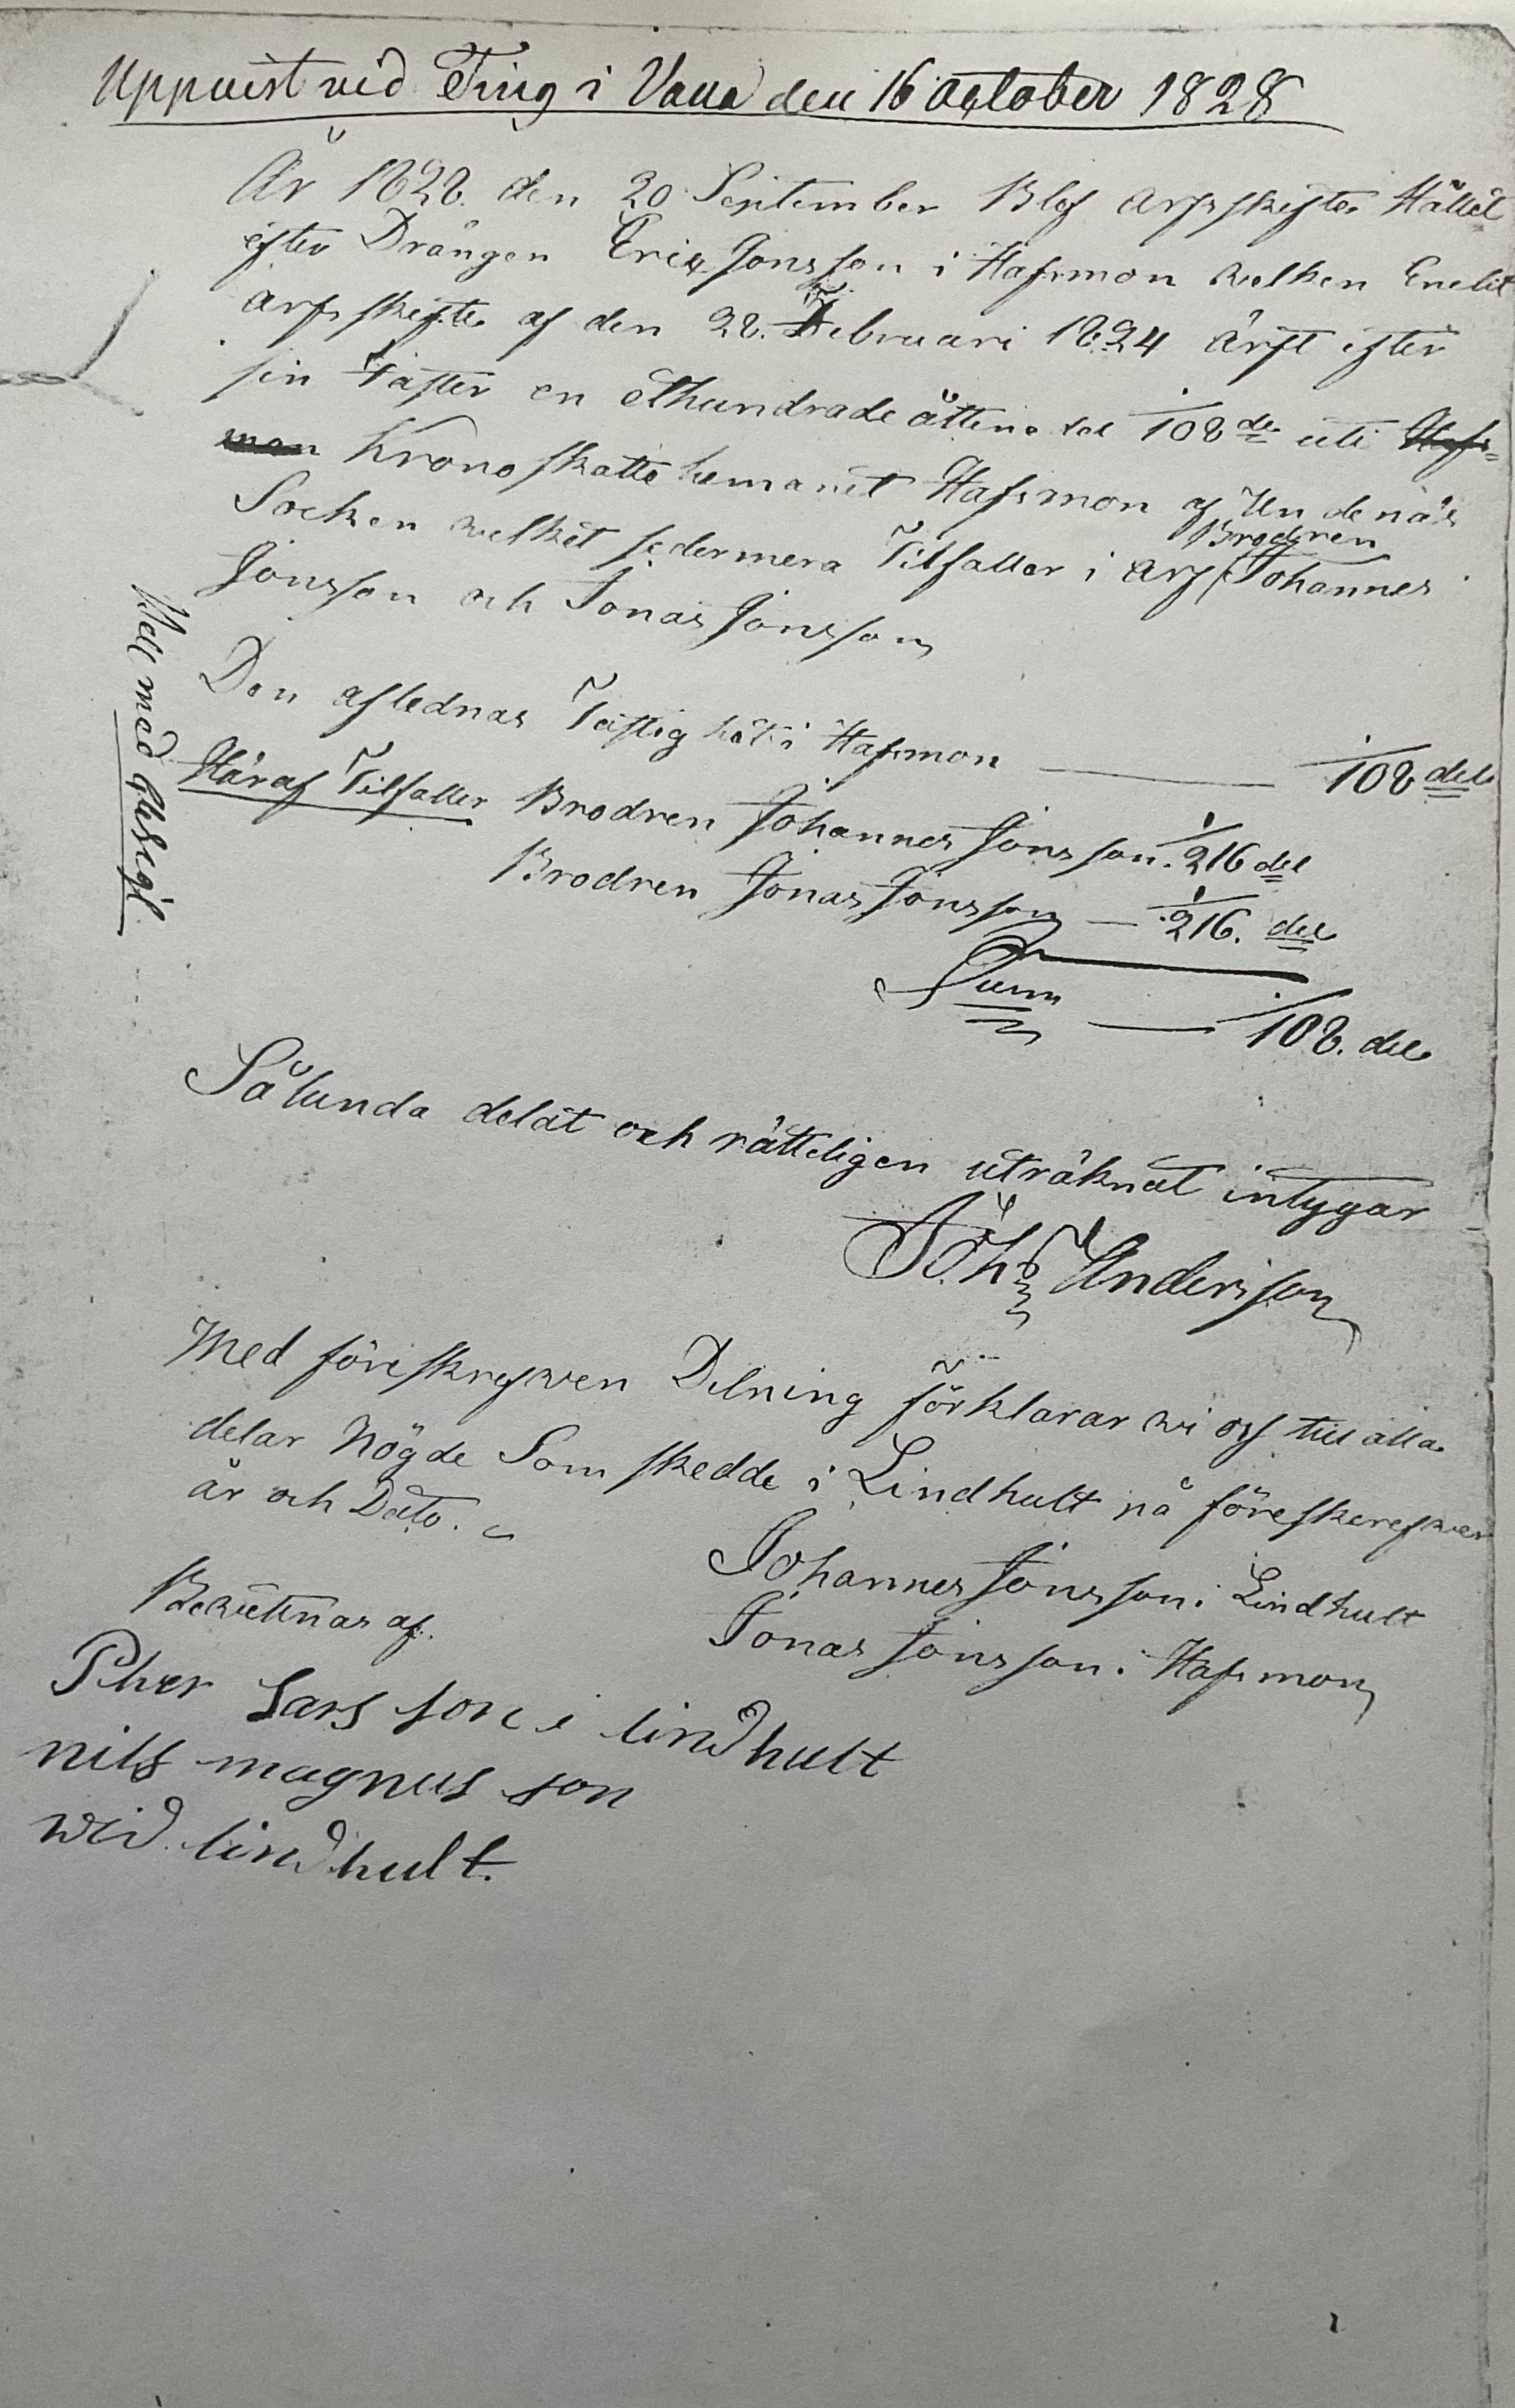 Uppvist vid Ting i Valla den 16 October 1828
År 1828. den 20 September Blef arfsskifte Hållet
efter Drängen Eric Jonsson i Hafsmon welken Enelit
arfsskifte af den 28. Februari 1824 ärft efter
sin Faster en Ethundrade åttine del 1/108 de uti Hafs=
mon Krono skatte hemanet Hafsmon af Undenäs
Socken welket sedermera Tilfaller i arf Brodren Johannes
Jonsson och Jonas Jonsson
Den aflednas Fastighet i Hafsmon — 1/108 dels
Häraf Tilfaller Brodren Johannes Jonsson. 1/216 del
Brodren Jonas Jonsson — 1/216. del
Sum — 1/108. del
Sålunda delat och rätteligen uträknat intygar
Joh: Andersson
Med föreskrefwen Delning förklarar wi oss till alla
delar Nögde Som skedde i Lindhult på föreskrefwen
år och Dato.
Johannes Jonsson i Lindhult
Bewittnas af.
Jonas Jonsson i Hafsmon
Pher Lars son i lindhult
nils magnus son
wid lindhult.